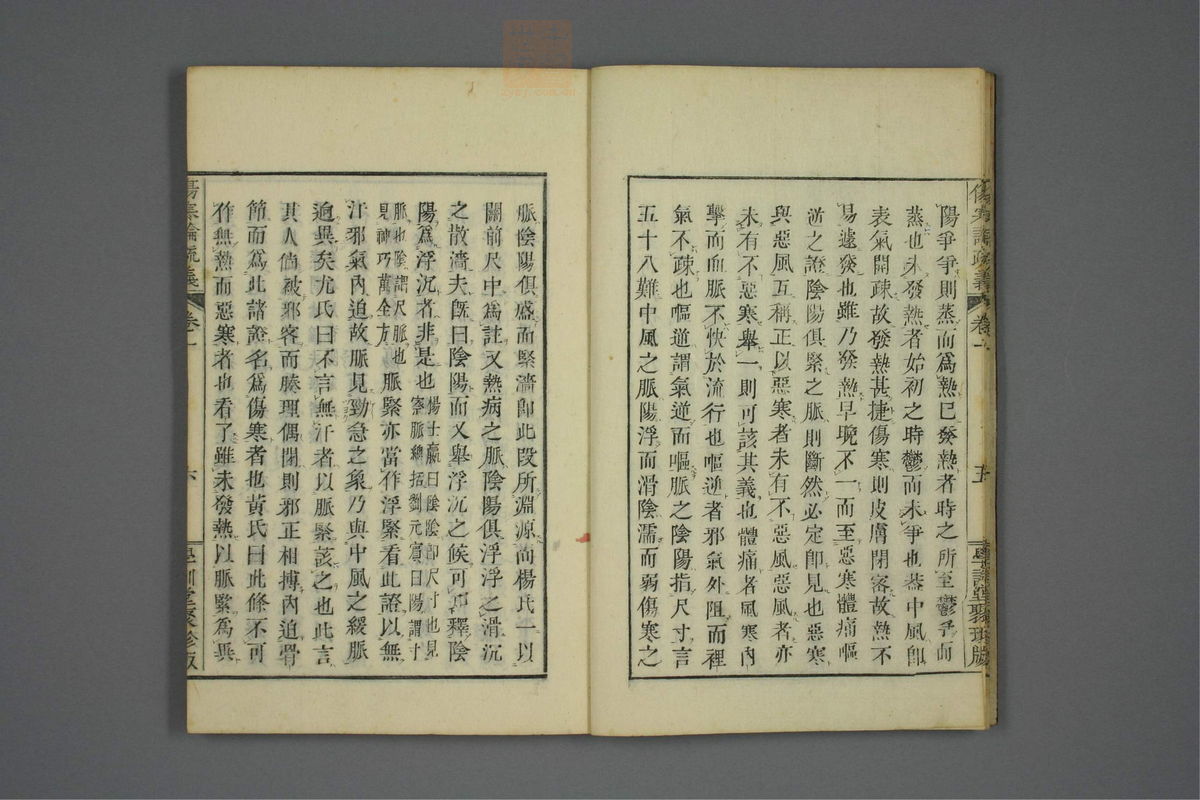 傷寒論疏義
卷一
五
學訓堂聚珍版
陽爭爭則蒸而爲熱已發熱者時之所至鬱爭而
蒸也未發熱者始初之時鬱而未爭也蓋中風卽
表氣開疎故發熱甚捷傷寒則皮膚閉密故熱不
易遽發也雖乃發熱早晚不一而至惡寒體痛嘔
逆之證陰陽俱緊之脈則斷然必定卽見也惡寒
與惡風互稱正以惡寒者未有不惡風惡風者亦
未有不惡寒舉一則可該其義也體痛者風寒內
擊而血脈不快於流行也嘔逆者邪氣外阻而裡
氣不疎也嘔逆謂氣逆而嘔脈之陰陽指尺寸言
五十八難中風之脈陽浮而滑陰濡而弱傷寒之
脈陰陽俱盛而緊濇卽此段所淵源尚楊氏一以
關前尺中爲註又熱病之脈陰陽俱浮浮之滑沉
之散濇夫旣曰陰陽而又舉浮沉之候可知釋陰
陽爲浮沉者非是也楊士瀛曰陰陰卽尺寸也見
察脈總括劉元賓曰陽謂寸
脈也陰謂尺脈也
見神巧萬全方
脈緊亦當作浮緊看此證以無
汗邪氣內迫故脈見勁急之象乃與中風之緩脈
逈異矣尤氏曰不言無汗者以脈緊該之也此言
其人倘被邪客而腠理偶閉則邪正相搏內迫骨
節而爲此諸證名爲傷寒者也黃氏曰此條不可
作無熱而惡寒者也看了雖未發熱以脈緊爲異
傷寒論疏義
卷一
六
學訓堂聚珍版